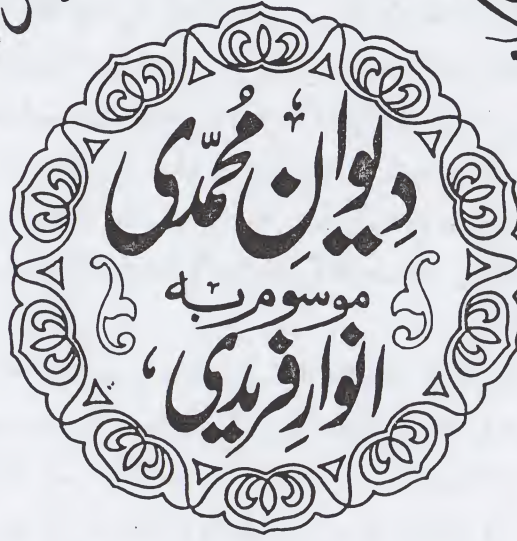 دِیوانِ مُحمّدی
موسوم بہ
انوارِ فریدی